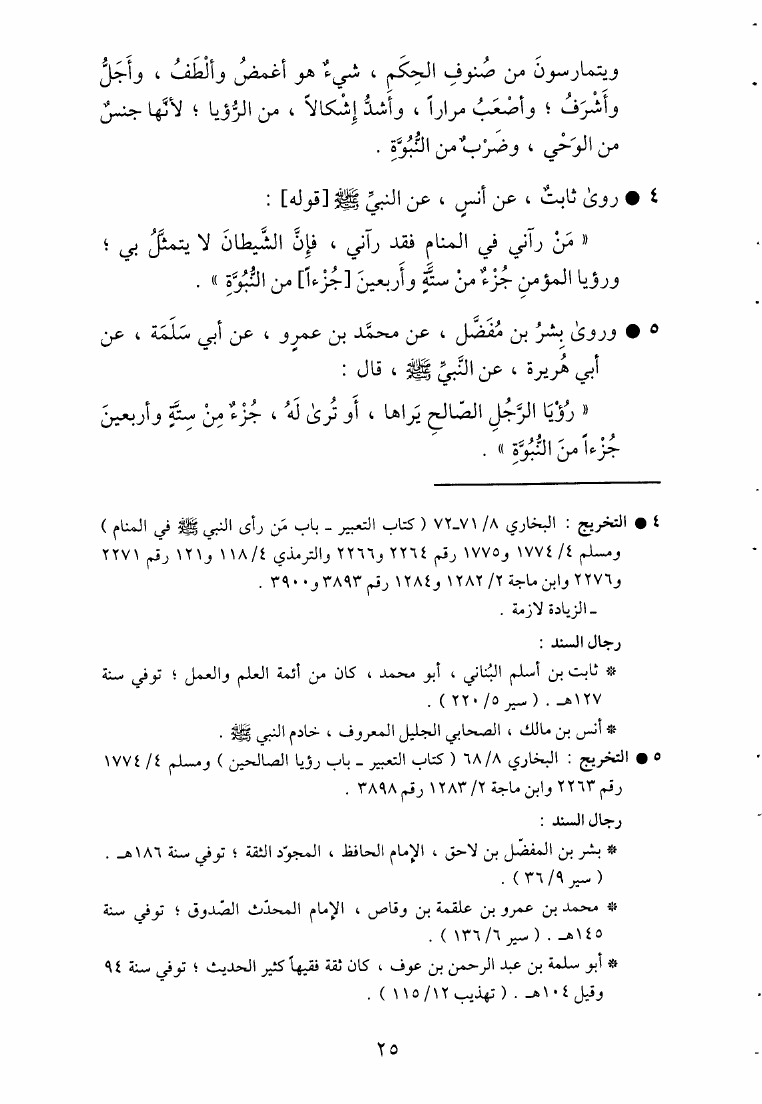 ويتمارسونَ من صُنوفِ الحِكَمِ ، شيءٌ هو أغمضُ وألْطَفُ ، وأجَلُّ
وأشْرَفُ ؛ وأصْعَبُ مراراً ، وأشدُّ إشْكالاً ، من الرُّؤيا ؛ لأنَّها جنسٌ
من الوَحْي ، وضَرْبٌ من النُّبُوَّةِ .
٤ ● روىٰ ثابتٌ ، عن أنسٍ ، عن النبيِّ ﷺ [قوله] :
« مَنْ رآني في المنام فقد رآني ، فإنَّ الشَّيطانَ لا يتمثَّلُ بي ؛
ورؤيا المؤمنِ جُزْءٌ منْ ستَّةٍ وأربعينَ [جُزْءاً] من النُّبُوَّةِ » .
٥ ● وروىٰ بِشرُ بن مُفَضَّل ، عن محمَّد بن عمرٍو ، عن أبي سَلَمَة ، عن
أبي هُريرة ، عن النَّبيِّ ﷺ ، قال :
« رُؤْيَا الرَّجُلِ الصّالحِ يَراها ، أو تُرىٰ لَهُ ، جُزْءٌ مِنْ سِتَّةٍ وأربعينَ
جُزْءاً منَ النُّبُوَّةِ » .
٤ ● التخريج : البخاري ٨/ ٧١ـ٧٢ ( كتاب التعبير ـ باب مَن رأى النبي ﷺ في المنام )
ومسلم ٤/ ١٧٧٤ و١٧٧٥ رقم ٢٢٦٤ و٢٢٦٦ والترمذي ٤/ ١١٨ و١٢١ رقم ٢٢٧١
و٢٢٧٦ وابن ماجة ٢/ ١٢٨٢ و١٢٨٤ رقم ٣٨٩٣ و٣٩٠٠ .
ـ الزيادة لازمة .
رجال السند :
* ثابت بن أسلم البُناني ، أبو محمد ، كان من أئمة العلم والعمل ؛ توفي سنة
١٢٧هـ . ( سير ٥/ ٢٢٠ ) .
* أنس بن مالك ، الصحابي الجليل المعروف ، خادم النبي ﷺ .
٥ ● التخريج : البخاري ٨/ ٦٨ ( كتاب التعبير ـ باب رؤيا الصالحين ) ومسلم ٤/ ١٧٧٤
رقم ٢٢٦٣ وابن ماجة ٢/ ١٢٨٣ رقم ٣٨٩٨ .
رجال السند :
* بشر بن المفضّل بن لاحق ، الإمام الحافظ ، المجوّد الثقة ؛ توفي سنة ١٨٦هـ .
( سير ٩/ ٣٦ ) .
* محمد بن عمرو بن علقمة بن وقاص ، الإمام المحدّث الصّدوق ؛ توفي سنة
١٤٥هـ . ( سير ٦/ ١٣٦ ) .
* أبو سلمة بن عبد الرحمن بن عوف ، كان ثقة فقيهاً كثير الحديث ؛ توفي سنة ٩٤
وقيل ١٠٤هـ . ( تهذيب ١٢/ ١١٥ ) .
٢٥